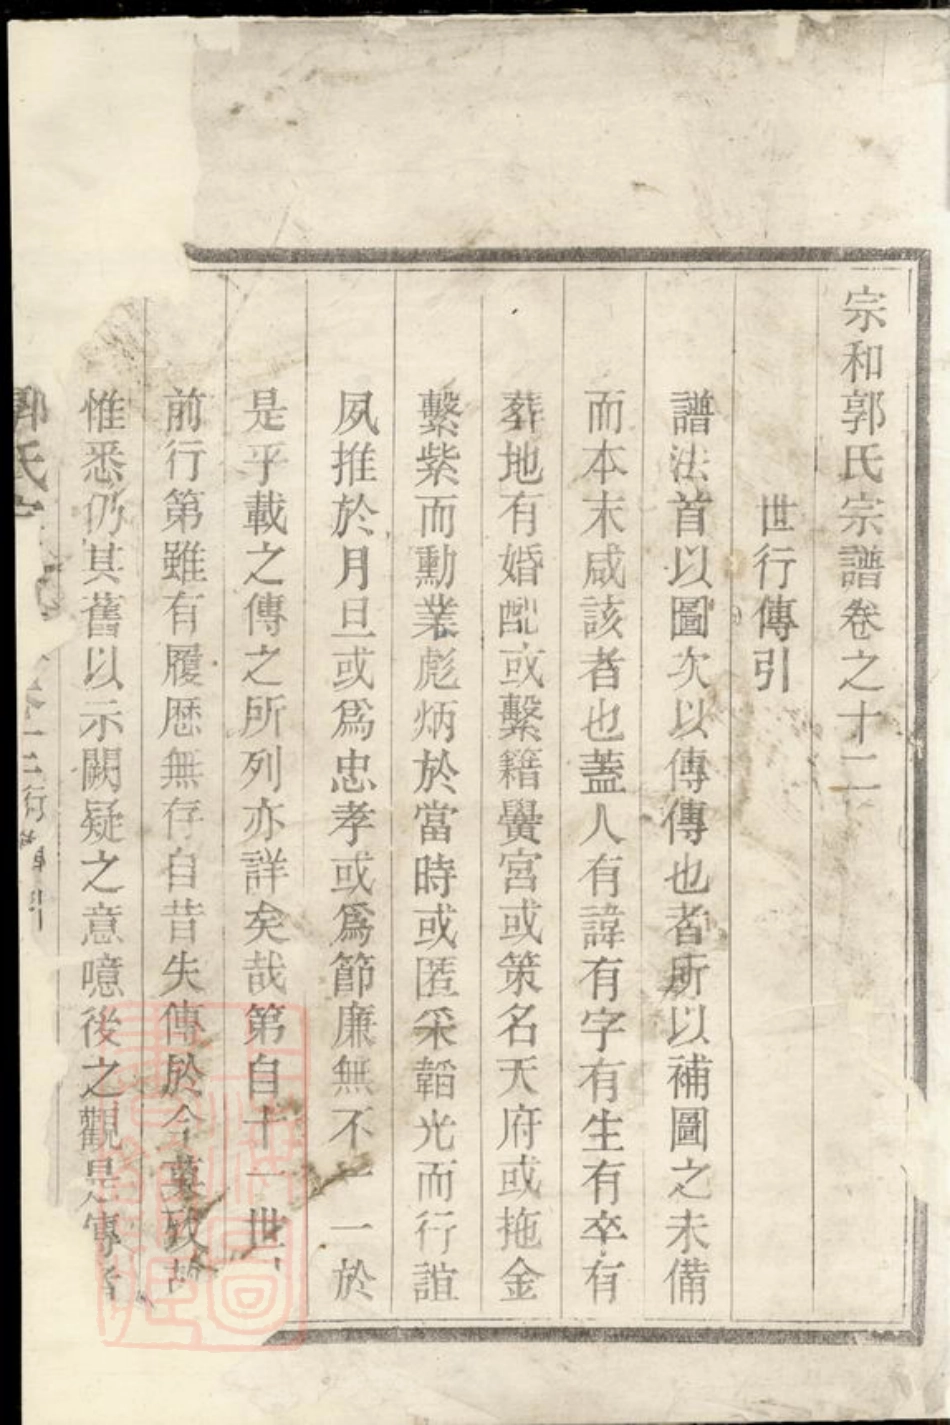 宗和郭氏宗譜卷之十二
世行傳引
譜法首以圖次以傳傳也者所以補圖之未備
而本末咸該者也蓋人有諱有字有生有卒有
葬地有婚配或繫籍黌宮或策名天府或拖金
繫紫而勳業彪炳於當時或匿采韜光而行誼
夙推於月旦或爲忠孝或爲節廉無不一一於
是乎載之傳之所列亦詳矣哉第自十一世
前行第雖有履歷無存自昔失傳於今莫攷故
惟悉仍其舊以示闕疑之意噫後之觀是傳者
郭氏宗
十二行傳引